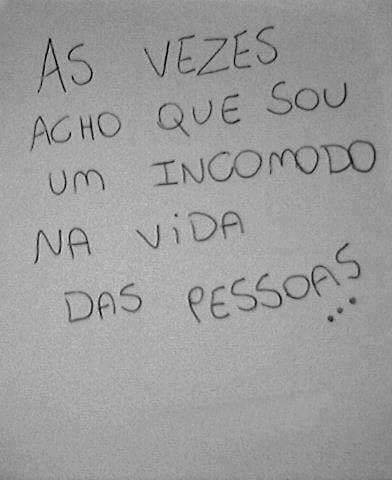 AS VEZES
ACHO QUE SOU
UM INCOMODO
NA ViDA
DAS PESSOAS
...